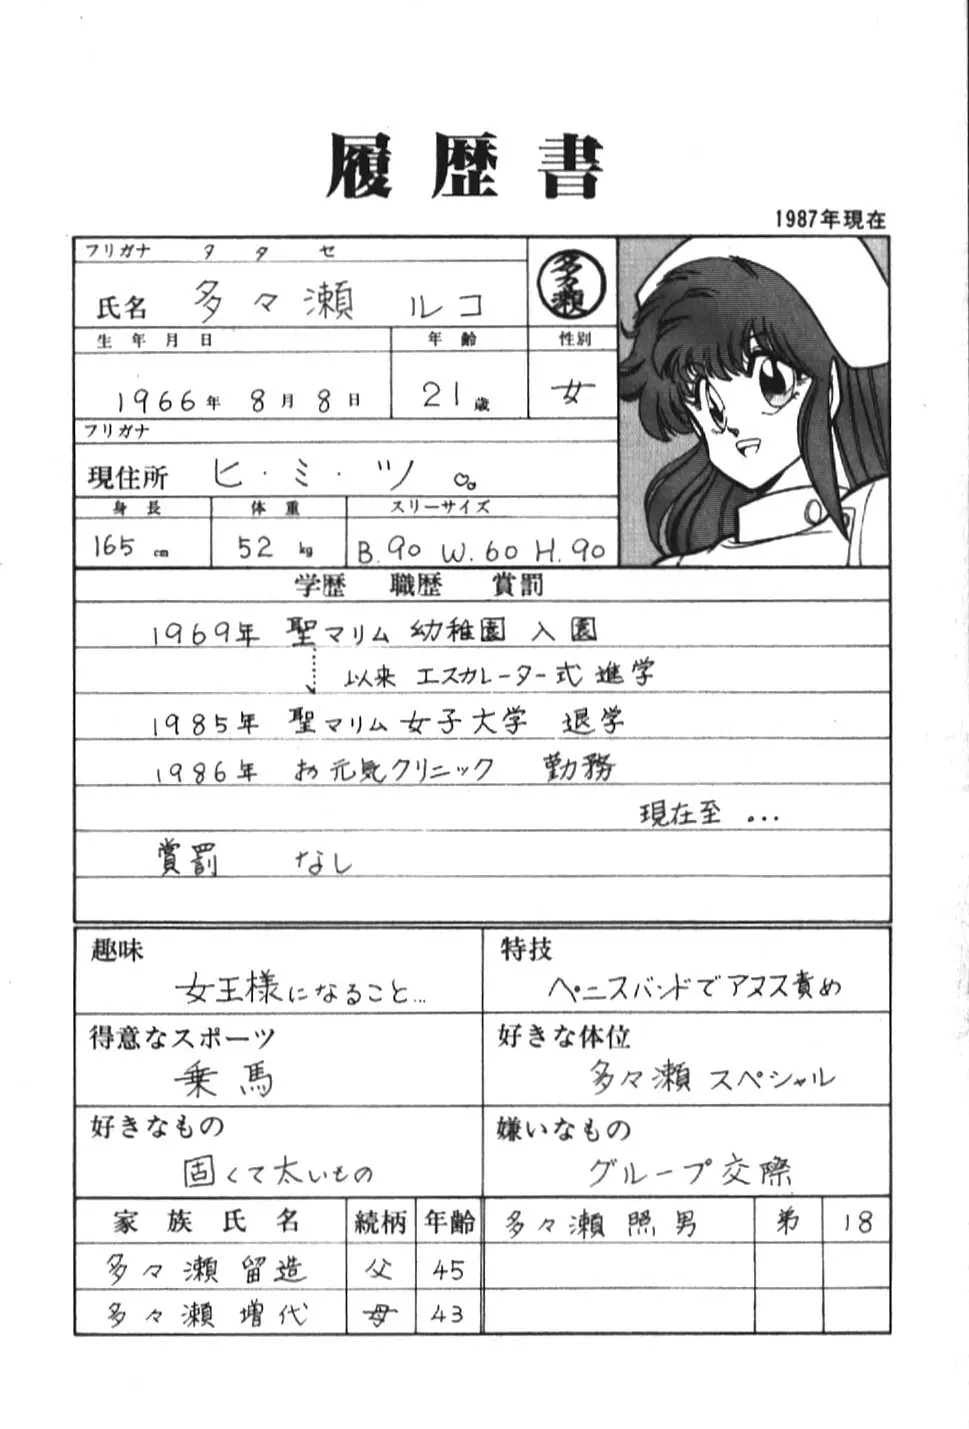 履歴書
1987年現在
フリガナ タタセ
氏名 多々瀬 ルコ
多々瀬
生年月日 年齢 性別
1966年 8月 8日 21歳 女
フリガナ
現住所 ヒ・ミ・ツ
身長 体重 スリーサイズ
165cm 52kg B.90 W.60 H.90
学歴 職歴 賞罰
1969年 聖マリム 幼稚園 入園
以来 エスカレーター式 進学
1985年 聖マリム 女子大学 退学
1986年 お元気クリニック 勤務
現在至 ...
賞罰 なし
趣味
女王様になること...
特技
ペニスバンドでアヌス責め
得意なスポーツ
乗馬
好きな体位
多々瀬 スペシャル
好きなもの
固くて太いもの
嫌いなもの
グループ交際
家族氏名 続柄 年齢
多々瀬 留造 父 45
多々瀬 増代 母 43
多々瀬 照男 弟 18